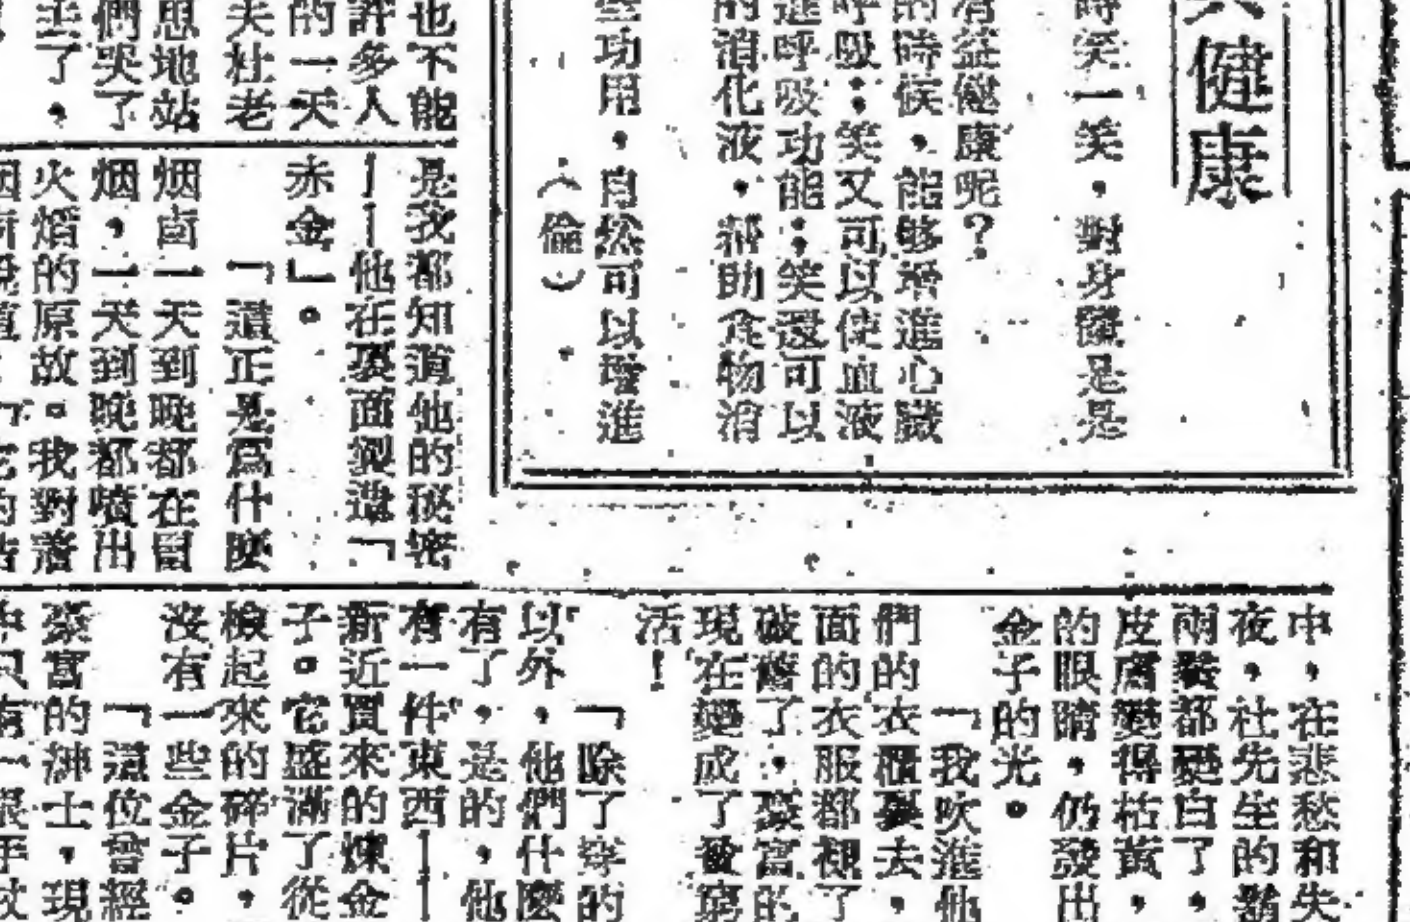 健康
時笑一笑，對身體是是
有益健康呢？
的時候，能够增進心臟
呼吸；笑又可以使血液
進呼吸功能；笑還可以
的消化液，帮助食物消
功用，自然可以增進
（倫）
也不能
許多人
的一天
夫杜老
息地站
們哭了
了，
是我都知道他的秘密
——他在裏面製造「
赤金」。
「這正是爲什麽
烟囱一天到晚都在冒
烟，一天到晚都噴出
火焰的原故。我對着
中，在悲愁和失
夜，社先生的鬚
兩鬢都變白了，
皮膚變得枯黃，
的眼睛，仍發出
金子的光。
「我吹進他
們的衣櫃裏去，
面的衣服都
破舊了，豪富的
現在變成了最窮
活！
「除了穿的
以外，他們什麼
有了，是的，他
有一件東西——
新近買來的煉金
子。它盛滿了從
檢起來的碎片，
沒有一些金子。
「這位曾經
豪富的紳士，現
中只有一根手杖